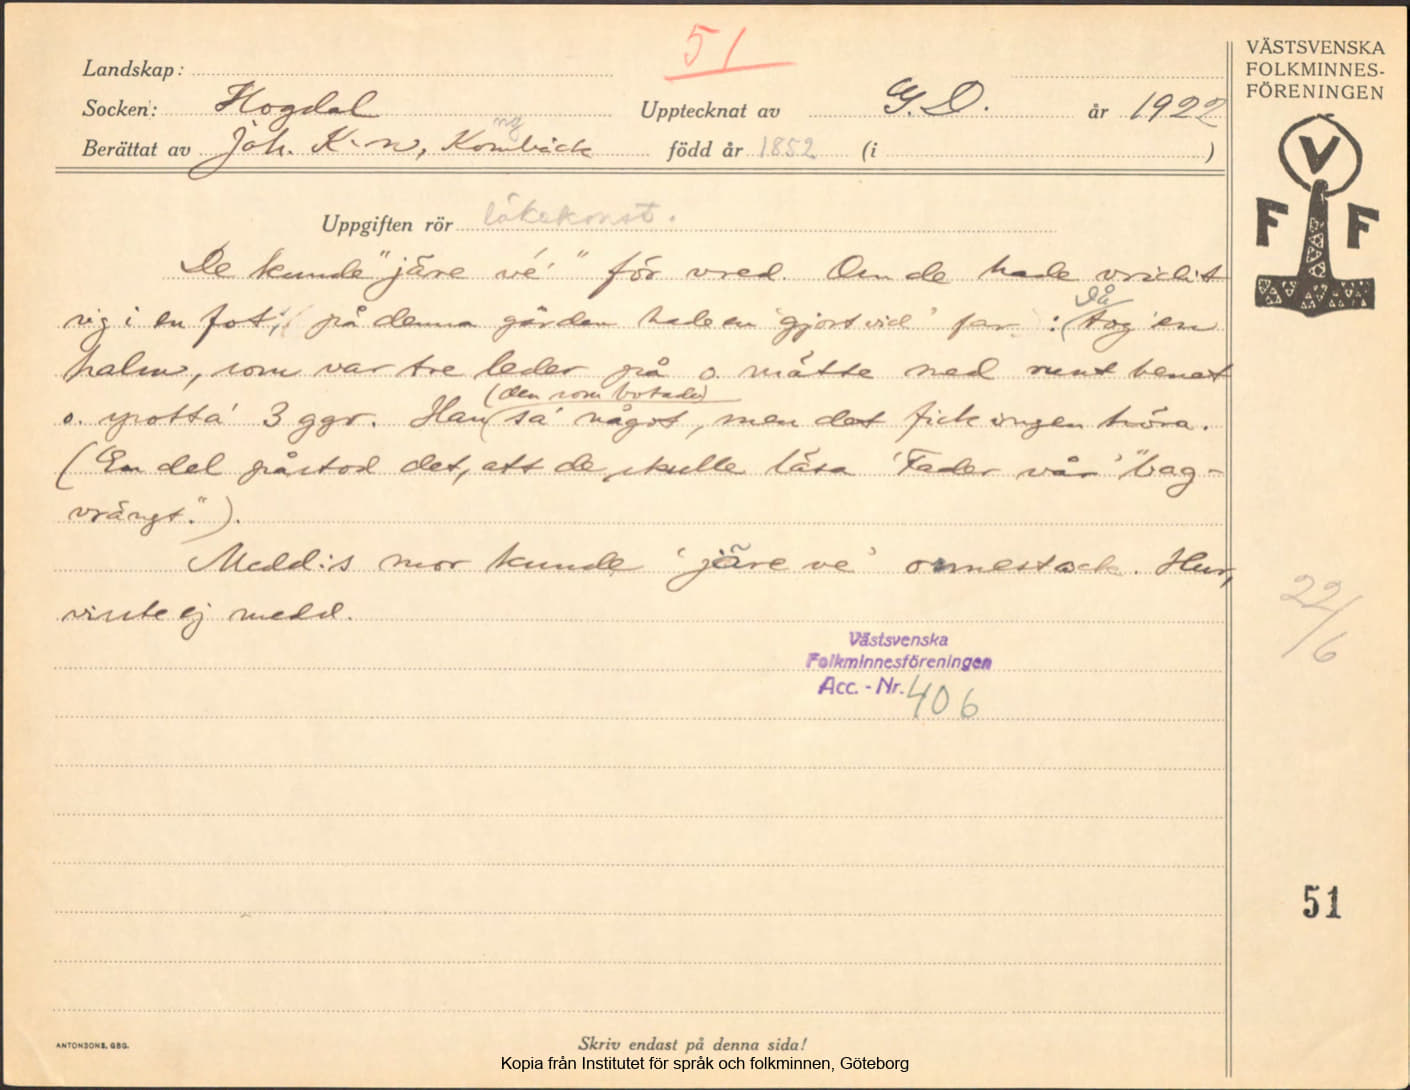 51
VÄSTSVENSKA
FOLKMINNES-
FÖRENINGEN
Landskap:
Socken: Hogdal Upptecknat av G. D. år 1922
Berättat av Joh. K-n, Kornbäck född år 1852 (i )
ng
V
F F
Uppgiften rör läkekonst.
De kunde "järe vé" för vred. Om de hade vridit
sig i en fot; på denna gården hade en 'gjort vid' far: (Då tog en
halm, som var tre leder på o. mätte ned runt benet
(den som botade)
o. spotta' 3 ggr. Han sa' något, men det fick ingen höra.
(En del påstod det, att de skulle läsa 'Fader vår' "bag-
vrängt.").
Medd:s mor kunde 'järe ve' ormestack. Hur,
visste ej medd.
Västsvenska
Folkminnesföreningen
Acc. - Nr. 406
22/6
51
ANTONSONS, GBG.
Skriv endast på denna sida!
Kopia från Institutet för språk och folkminnen, Göteborg